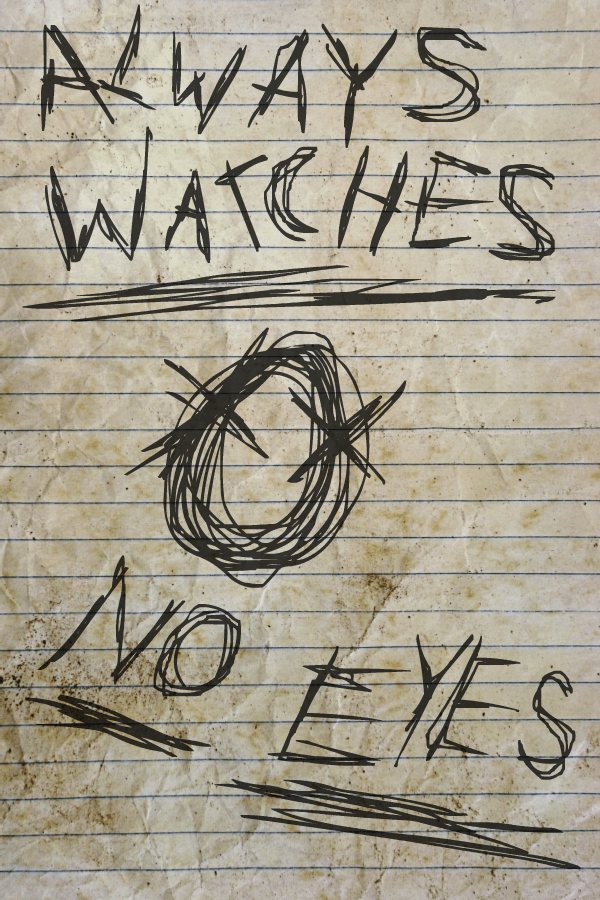 ALWAYS
WATCHES
NO EYES